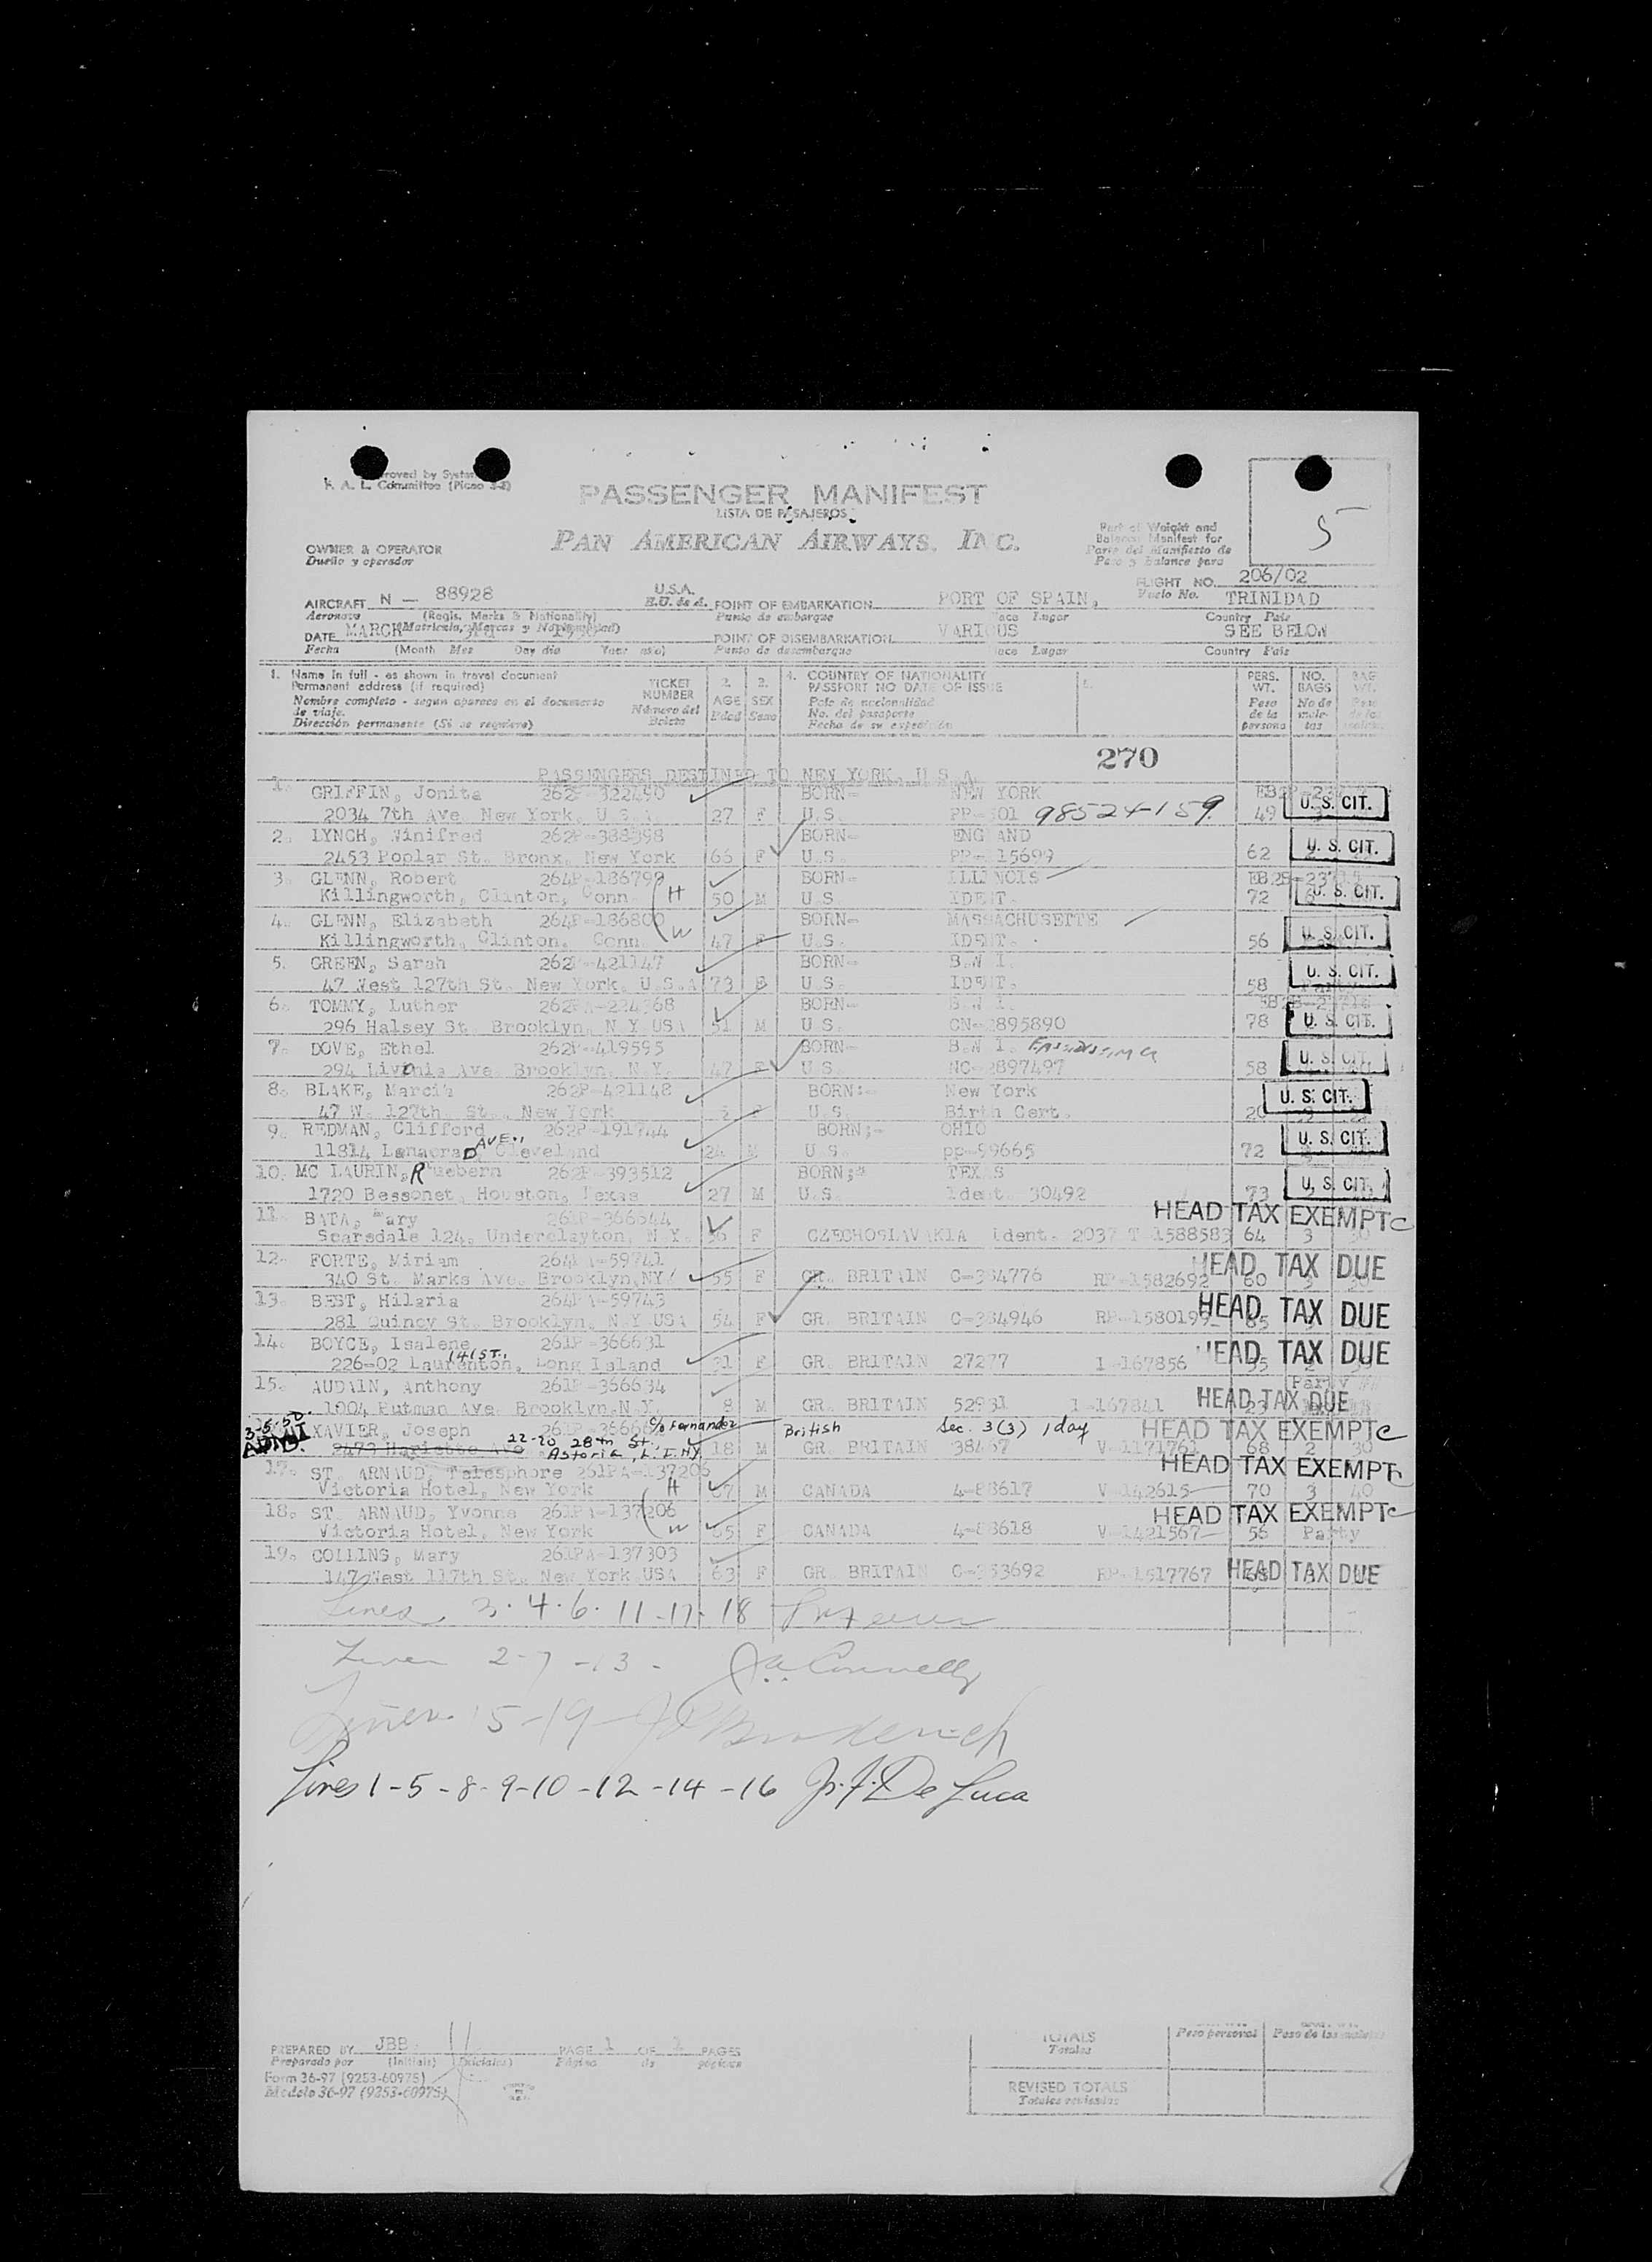 roved by System
F. A. L. Committee (Picao 3-2)
PASSENGER MANIFEST
LISTA DE PASAJEROS
PAN AMERICAN AIRWAYS, INC.
5
Part of Weight and
Balance Manifest for
Parte del Manifiesto de
Peso y balance para
OWNER & OPERATOR
Dueño y operador
FLIGHT NO. 206/02
Vuelo No.
AIRCRAFT N — 88928 U.S.A. POINT OF EMBARKATION PORT OF SPAIN, TRINIDAD
Aeronave (Regis. Marks & Nationality) E.U. de A. Punto de embarque Lugar Country País
(Matrícula, Marcas y Nacionalidad)
DATE MARCH POINT OF DISEMBARKATION VARIOUS SEE BELOW
Fecha (Month Mes Day día Year año) Punto de desembarque Lugar Country País
1. Name in full - as shown in travel document
Permanent address (if required)
Nombre completo - segun aparece en el documento
de viaje.
Dirección permanente (Si se requiere)
TICKET
NUMBER
Número del
Boleto
2.
AGE
Edad
3.
SEX
Sexo
4. COUNTRY OF NATIONALITY
PASSPORT NO DATE OF ISSUE
País de nacionalidad
No. del pasaporte
Fecha de su expedición
PERS.
WT.
Peso
de la
persona
NO.
BAGS
No de
male-
tas
BAG
WT.
270
PASSENGERS DESTINED TO NEW YORK, U.S.A.
1. GRIFFIN, Jonita 262P-322490 BORN- NEW YORK
2034 7th Ave New York, U.S.A. 27 F U.S. 98524-159 49 U. S. CIT.
2. LYNCH, Winifred 262P-388398 BORN- ENGLAND
2453 Poplar St. Bronx, New York 66 F U.S. PP-15699 62 U. S. CIT.
3. GLENN, Robert 264P-186799 BORN- ILLINOIS
Killingworth, Clinton, Conn. H 50 M U.S. IDENT. 72 U. S. CIT.
4. GLENN, Elizabeth 264P-186800 BORN- MASSACHUSETTE
Killingworth, Clinton, Conn W 47 F U.S. IDENT. 56 U. S. CIT.
5. GREEN, Sarah 262P-421147 BORN- B.W I.
47 West 127th St. New York, U.S.A 73 F U.S. IDENT. 58 Party U. S. CIT.
6. TOMMY, Luther 262PA-224368 BORN- B.W I.
296 Halsey St. Brooklyn, N Y USA 51 M U.S. CN-2895890 78 U. S. CIT.
7. DOVE, Ethel 262P-419595 BORN- B.W I.
294 Livonia Ave Brooklyn, N.Y. 47 F U.S. NC-2897497 58 U. S. CIT.
8. BLAKE, Marcia 262P-421148 BORN:- New York
47 W. 127th. St., New York U.S. Birth Cert. 20 U. S. CIT.
9. REDMAN, Clifford 262P-191744 BORN;- OHIO
11814 Lenacra D AVE., Cleveland 24 M U.S. pp-99665 72 U. S. CIT.
10. MC LAURIN, Ruebern 262P-393512 BORN;- TEXAS
1720 Bessonet, Houston, Texas 27 M U.S. Ident. 30492 73 U. S. CIT.
11. BATA, Mary 261P-366644 HEAD TAX EXEMPT
Scarsdale 124, Underclayton, N.Y. 36 F CZECHOSLAVAKIA Ident. 2037 T-1588583 64 3 30
12. FORTE, Miriam 264PA-59741 HEAD TAX DUE
340 St. Marks Ave. Brooklyn,NY/ 55 F GR. BRITAIN C-384776 RP-1582692 60
13. BEST, Hilaria 264PA-59743 HEAD TAX DUE
281 Quincy St. Brooklyn, N Y USA 54 F GR. BRITAIN C-384946 RP-1580199 65
14. BOYCE, Isalene 261P-366631 HEAD TAX DUE
226-02 141 ST., Laurenton, Long Island 31 F GR. BRITAIN 27277 I-167856 55
15. AUDAIN, Anthony 261P-366634 Party
1004 Putman Ave. Brooklyn,N.Y. 8 M GR. BRITAIN 52931 I-167841 23 HEAD TAX DUE
3-5-50. XAVIER, Joseph c/o Fernandez British Sec. 3(3) 1 day HEAD TAX EXEMPT
ADM'D. 22-20 28th St. Astoria, L.I. NY 18 M GR. BRITAIN 38467 V-1171761 68 2 30
17. ST. ARNAUD, Telesphore 261PA-137205 HEAD TAX EXEMPT
Victoria Hotel, New York H 67 M CANADA 4-88617 V-142615 70 3 40
18. ST. ARNAUD, Yvonne 261PA-137206 HEAD TAX EXEMPT
Victoria Hotel, New York W 65 F CANADA 4-88618 V-1421567 56 Party
19. COLLINS, Mary 261PA-137303
147 West 117th St. New York USA 63 F GR. BRITAIN C-353692 RP-1517767 68 HEAD TAX DUE
Lines 3-4-6-11-17-18
Lines 2-7-13- J.A. Connelly
Lines 15-19 J P Broderick
Lines 1-5-8-9-10-12-14-16 J.F. De Luca
PREPARED BY JBB PAGE 1 OF PAGES
Preparado por (Initials) (Iniciales) Página de páginas
Form 36-97 (9253-60975)
Modelo 36-97 (9253-60975)
TOTALS
Totales
Peso personal
REVISED TOTALS
Totales revisados